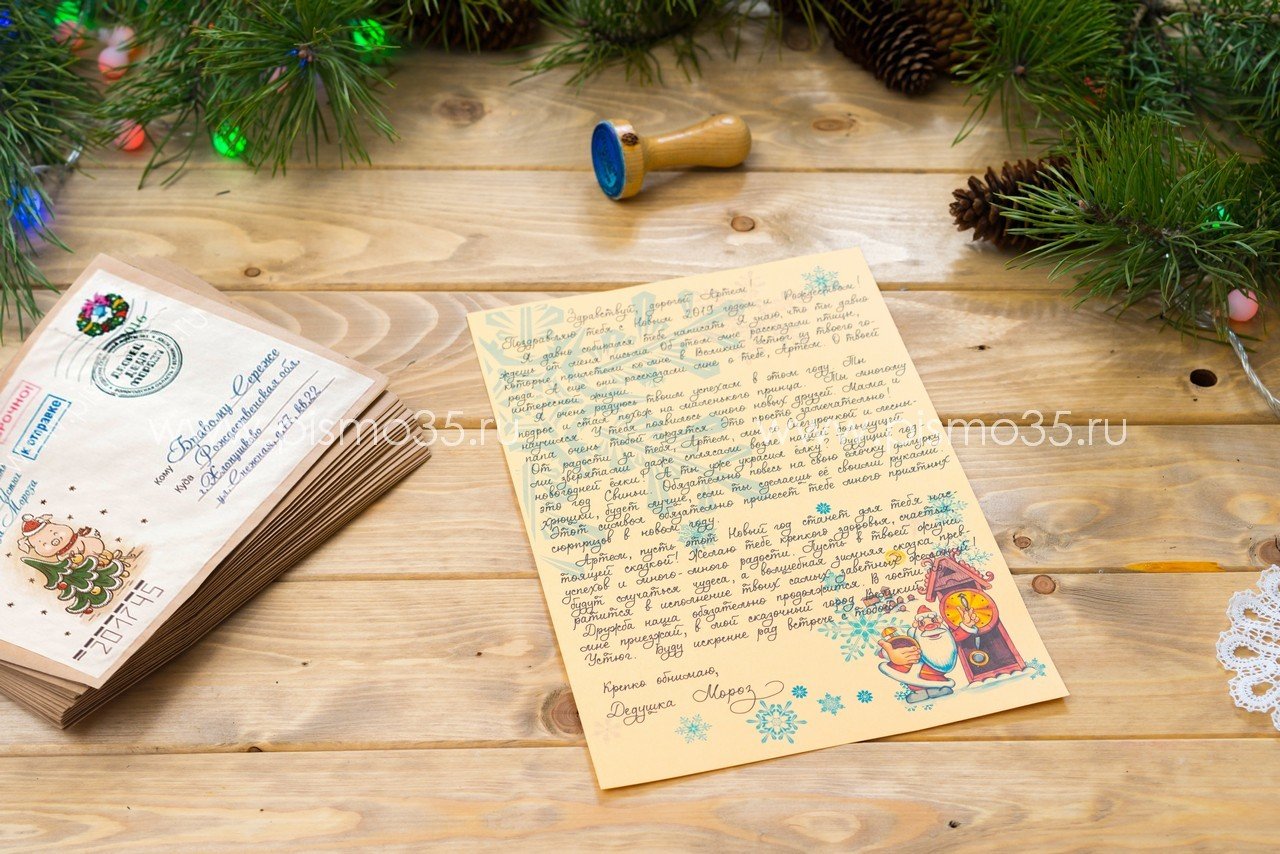 Здравствуй, дорогой Артем!
Поздравляю тебя с Новым 2019 годом и Рождеством!
Я давно собирался тебе написать. Я знаю, что ты давно
ждешь от меня письма. Об этом мне рассказали птицы,
которые прилетели ко мне в Великий Устюг из твоего го-
рода. А еще они рассказали мне о тебе, Артем. О твоей
интересной жизни.
Я очень радуюсь твоим успехам в этом году. Ты
подрос и стал похож на маленького принца. Ты многому
научился. У тебя появилось много новых друзей. Мама и
папа очень тобой гордятся. Это просто замечательно!
От радости за тебя, Артем, мы со Снегурочкой и лесны-
ми зверятами даже сплясали возле нашей пушистой
новогодней ёлки! А ты уже украсил елку? Будущий год -
это год Свиньи. Обязательно повесь на свою ёлочку фигурку
хрюшки, будет лучше, если ты сделаешь её своими руками.
Этот символ обязательно принесет тебе много приятных
сюрпризов в новом году.
Артем, пусть этот Новый год станет для тебя нас-
тоящей сказкой! Желаю тебе крепкого здоровья, счастья,
успехов и много-много радости. Пусть в твоей жизни
будут случаться чудеса, а волшебная зимняя сказка прев-
ратится в исполнение твоих самых заветных желаний!
Дружба наша обязательно продолжится. В гости ко
мне приезжай, в мой сказочный город Великий
Устюг. Буду искренне рад встрече с тобой!
Крепко обнимаю,
Дедушка Мороз
2016
СРОЧНО!
К отправке
Кому Бравому Сереже
Куда Рождественская обл.
г. Хлопушкино
ул. Снежная, д. 27, кв. 22
Устюг
Мороза
201745
www.pismo35.ru
www.pismo35.ru